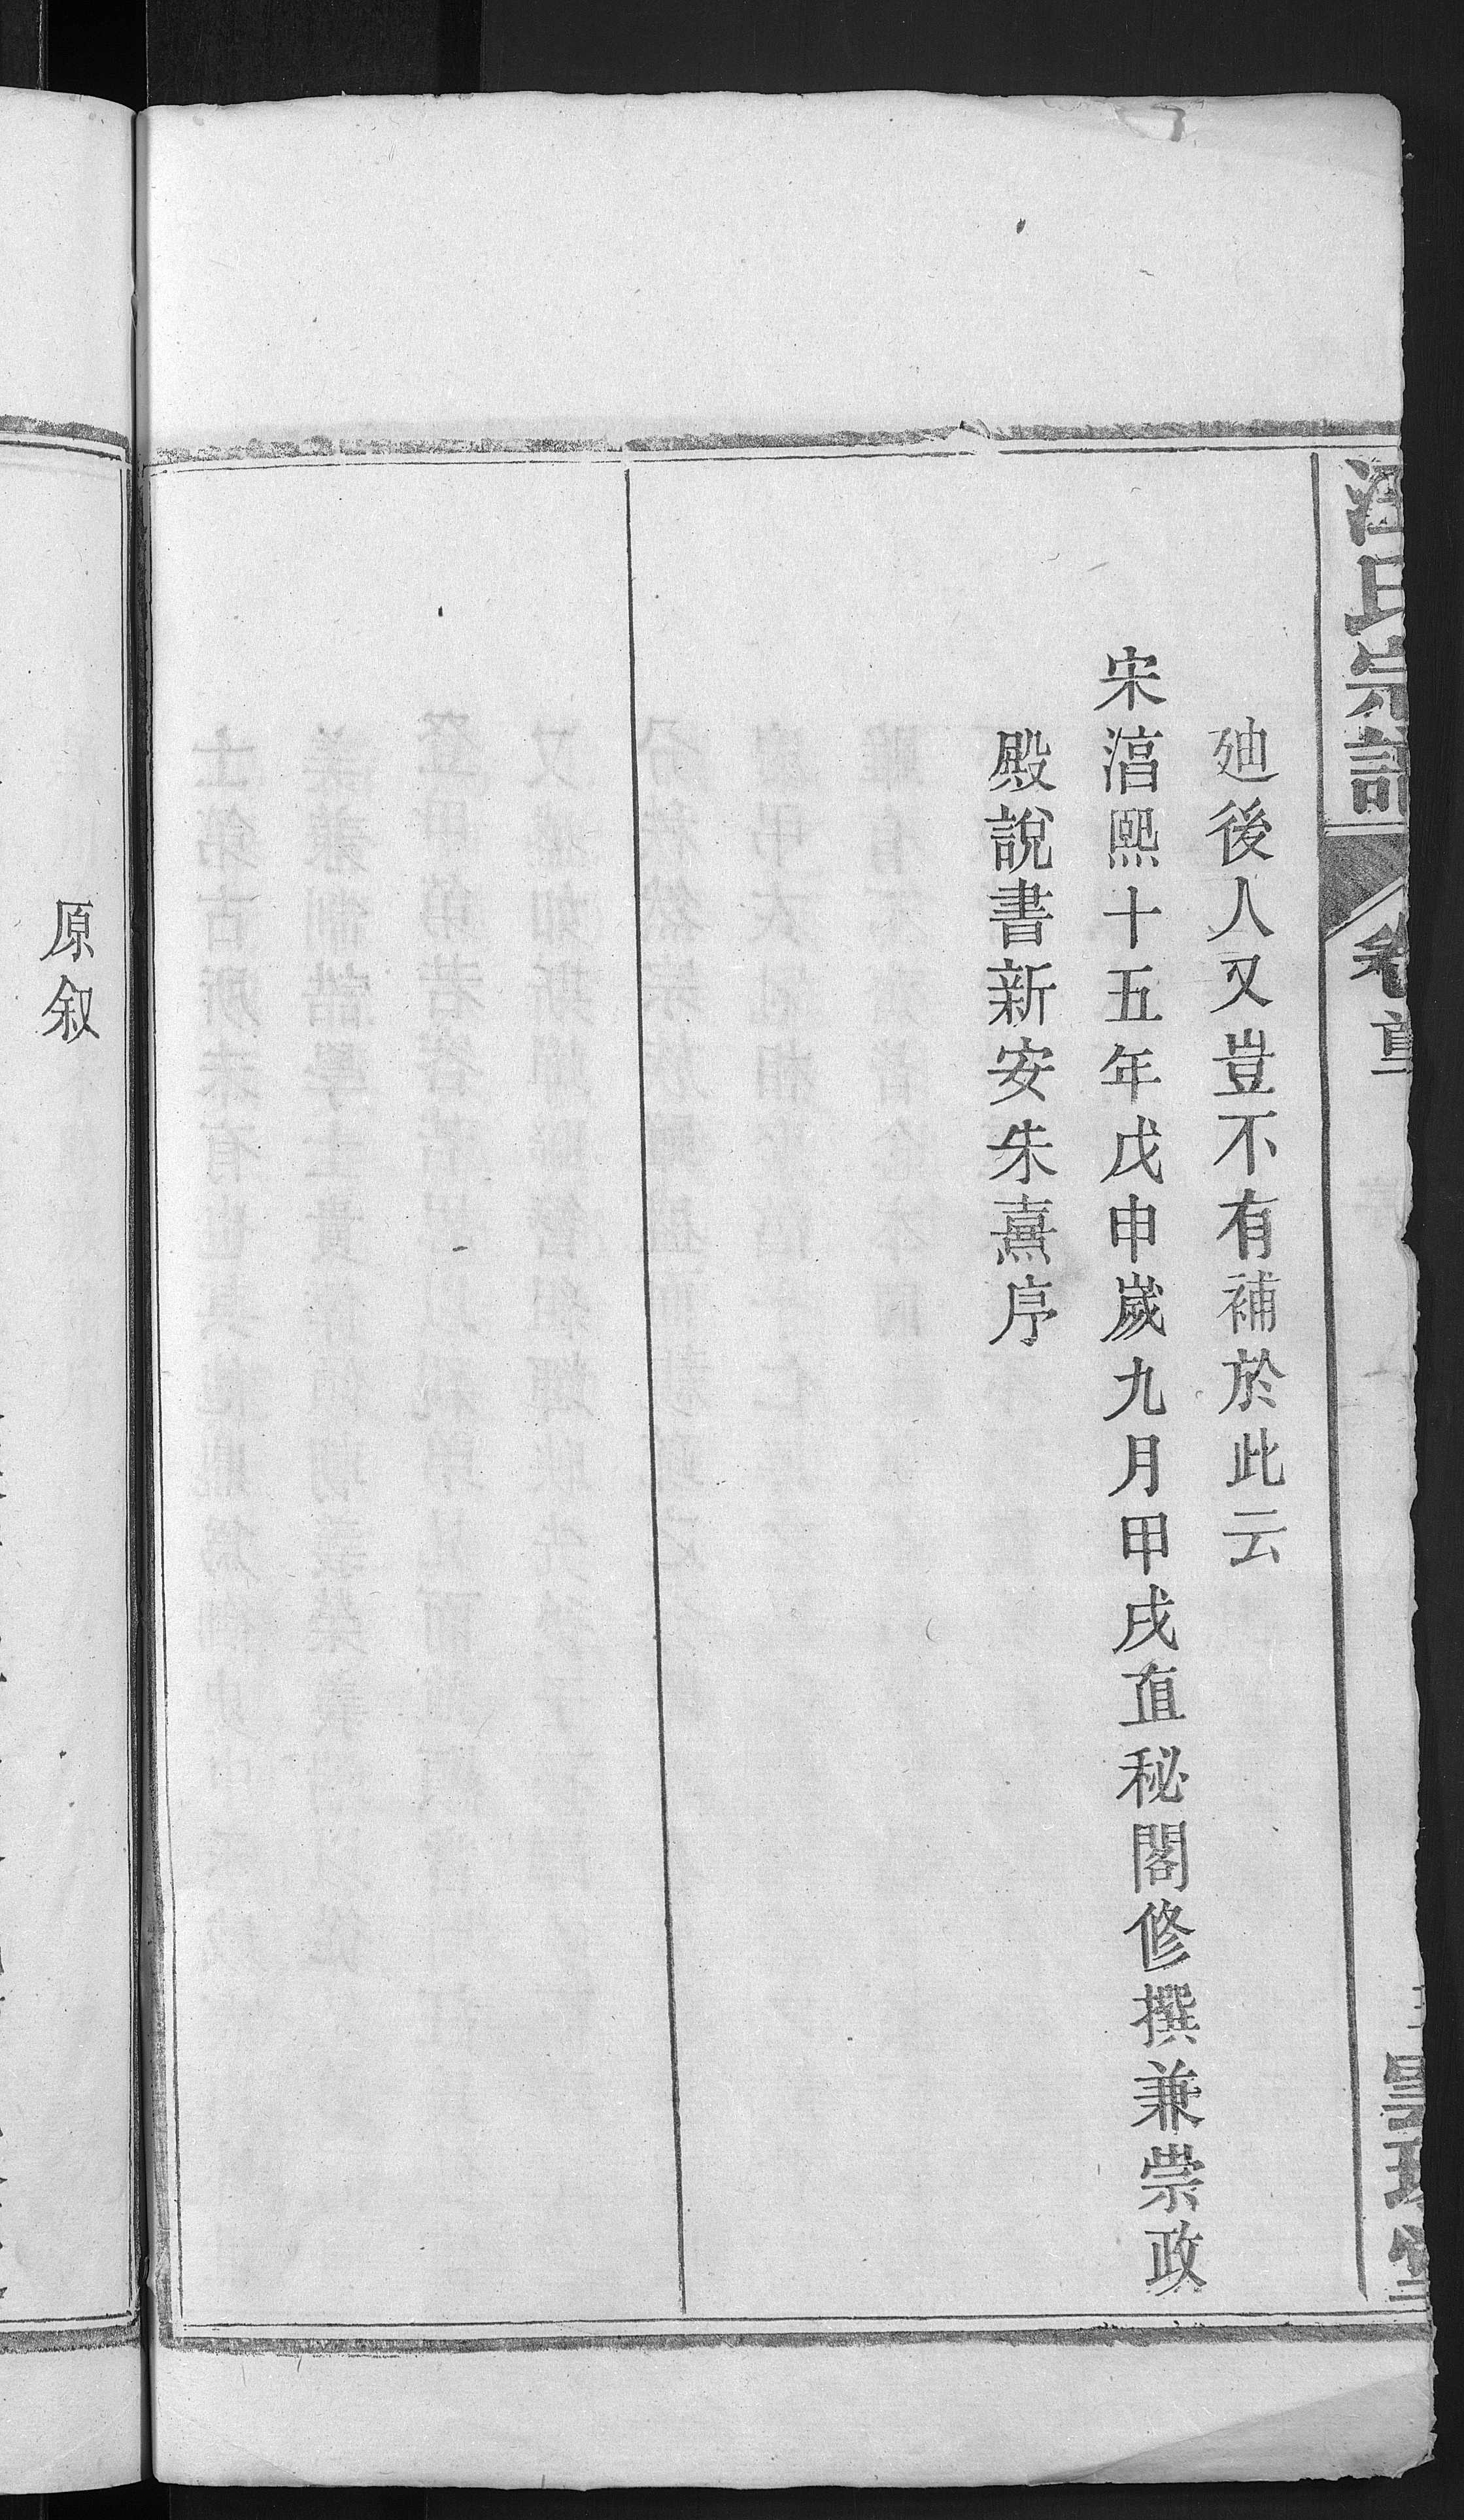 氏宗譜
卷首
廸後人又豈不有補於此云
宋湻熙十五年戊申歲九月甲戌直秘閣修撰兼崇政
殿說書新安朱熹序
原叙